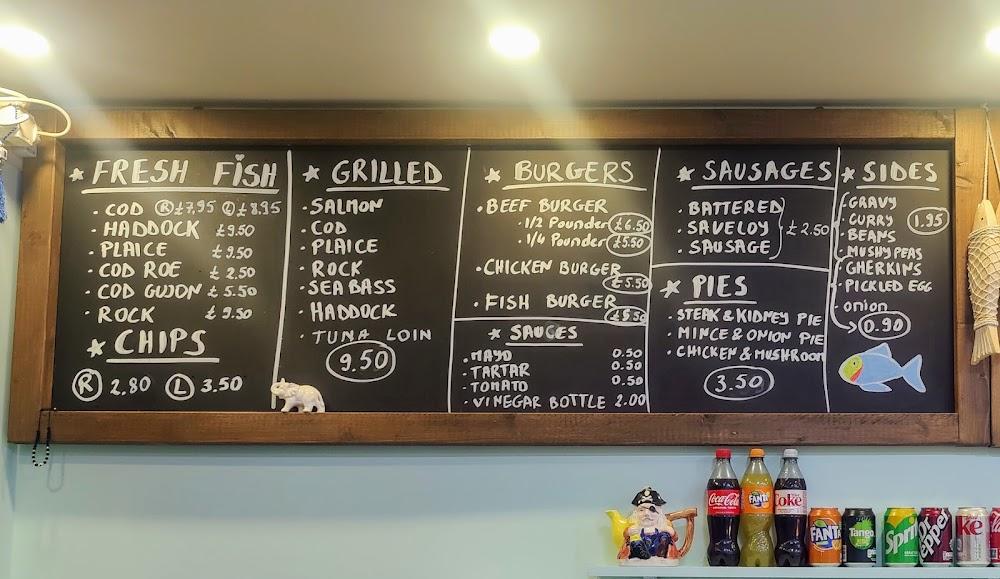 ★ FRESH FISH
• COD Ⓡ £7,95 Ⓛ £8,95
• HADDOCK £9.50
• PLAICE £9.50
• COD ROE £ 2.50
• COD GUJON £ 5.50
• ROCK £ 9.50
★ CHIPS
Ⓡ 2.80 Ⓛ 3.50
★ GRILLED
• SALMON
• COD
• PLAICE
• ROCK
• SEA BASS
• HADDOCK
• TUNA LOIN
9.50
★ BURGERS
• BEEF BURGER
• 1/2 Pounder £6.50
• 1/4 Pounder £5.50
• CHICKEN BURGER
£5.50
• FISH BURGER
£5.50
★ SAUCES
• MAYO 0.50
• TARTAR 0.50
• TOMATO 0.50
• VINEGAR BOTTLE 2.00
★ SAUSAGES
• BATTERED
• SAVELOY £2.50
• SAUSAGE
★ PIES
• STEAK & KIDNEY PIE
• MINCE & ONION PIE
• CHICKEN & MUSHROOM
3.50
★ SIDES
GRAVY
• CURRY 1.95
• BEANS
• MUSHY PEAS
• GHERKINS
• PICKLED EGG
• onion
0.90
Coca-Cola
FANTA
Coke
FANTA
Tango
Sprite
Dr Pepper